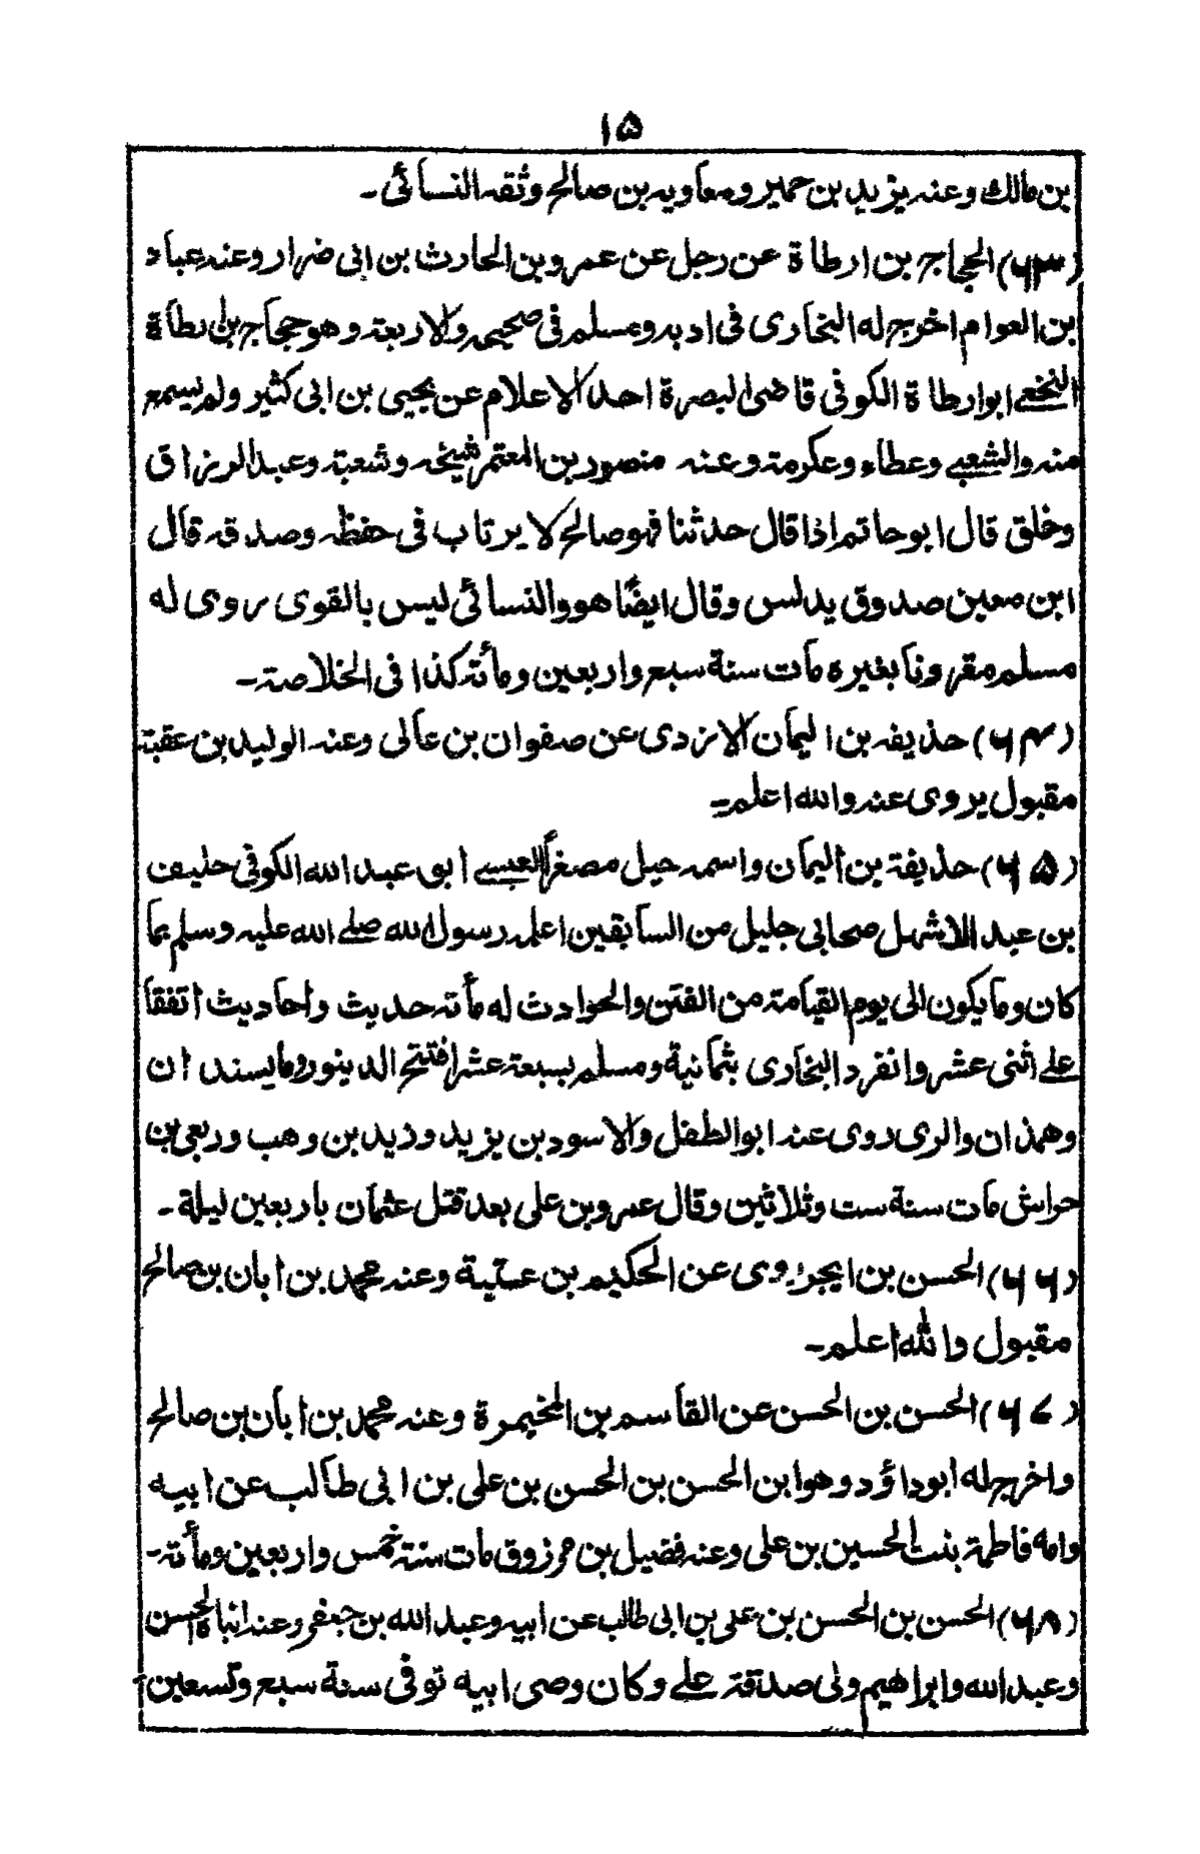 ۱۵
بن مالك وعنه يزيد بن حمير ومعاويه بن صالح وثقه النسائی۔
(۶۳) الحجاج بن ارطاة عن رجل عن عمرو بن الحارث بن ابی ضرار وعنه عباد
بن العوام اخرج له البخاری فی ادبه ومسلم فی صحيحه والاربعة وهو حجاج بن ارطاة
النخعی ابو ارطاة الكوفی قاضی البصرة احد الاعلام عن يحيی بن ابی كثير ولم يسمع
منه والشعبی وعطاء وعكرمة وعنه منصور بن المعتمر شيخه وشعبة وعبد الرزاق
وخلق قال ابو حاتم اذا قال حدثنا فهو صالح لا يرتاب فی حفظه وصدقه قال
ابن معين صدوق يدلس وقال ايضًا هو والنسائی ليس بالقوی روی له
مسلم مقرونا بغيره مات سنة سبع واربعين ومأته كذا فی الخلاصة۔
(۶۴) حذيفه بن اليمان الازدی عن صفوان بن عالی وعنه الوليد بن عقبة
مقبول يروی عنه والله اعلم۔
(۶۵) حذيفة بن اليمان واسمه حيل مصغرًا العبسی ابو عبد الله الكوفی حليف
بن عبد الاشهل صحابی جليل من السابقين اعلمه رسول الله صلی الله عليه وسلم بما
كان وما يكون الی يوم القيامة من الفتن والحوادث له مأته حديث واحاديث اتفقا
علی اثنی عشر وانفرد البخاری بثمانية ومسلم بسبعة عشر افتتح الدينور وما يسندان
وهمذان والری روی عنه ابو الطفل والاسود بن يزيد وزيد بن وهب وربعی بن
حراش مات سنة ست وثلاثين وقال عمرو بن علی بعد قتل عثمان باربعين ليلة۔
(۶۶) الحسن بن ابجر روی عن الحكيم بن عتيبة وعنه محمد بن ابان بن صالح
مقبول والله اعلم۔
(۶۷) الحسن بن الحسن عن القاسم بن المخيمرة وعنه محمد بن ابان بن صالح
واخرج له ابو داؤد وهو ابن الحسن بن الحسن بن علی بن ابی طالب عن ابيه
وامه فاطمة بنت الحسين بن علی وعنه فضيل بن مرزوق مات سنة خمس واربعين ومأته۔
(۶۸) الحسن بن الحسن بن علی بن ابی طالب عن ابيه وعبد الله بن جعفر وعنه ابناه الحسن
وعبد الله وابراهيم ولی صدقة علی وكان وصی ابيه توفی سنة سبع وتسعين